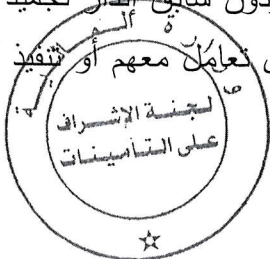 دون سابق إنذار تجميد
تعامُل معهم أو تنفيذ
لجنة الإشراف
على التأمينات